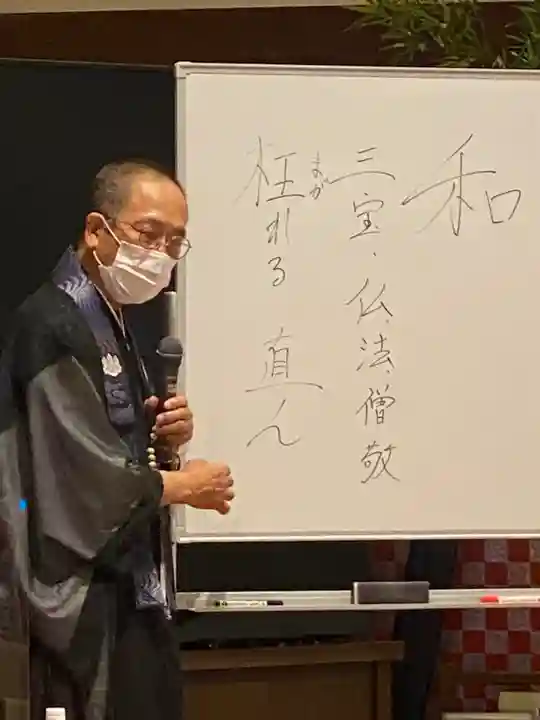 和
三宝、仏、法、僧敬
枉れる 直ん
まが